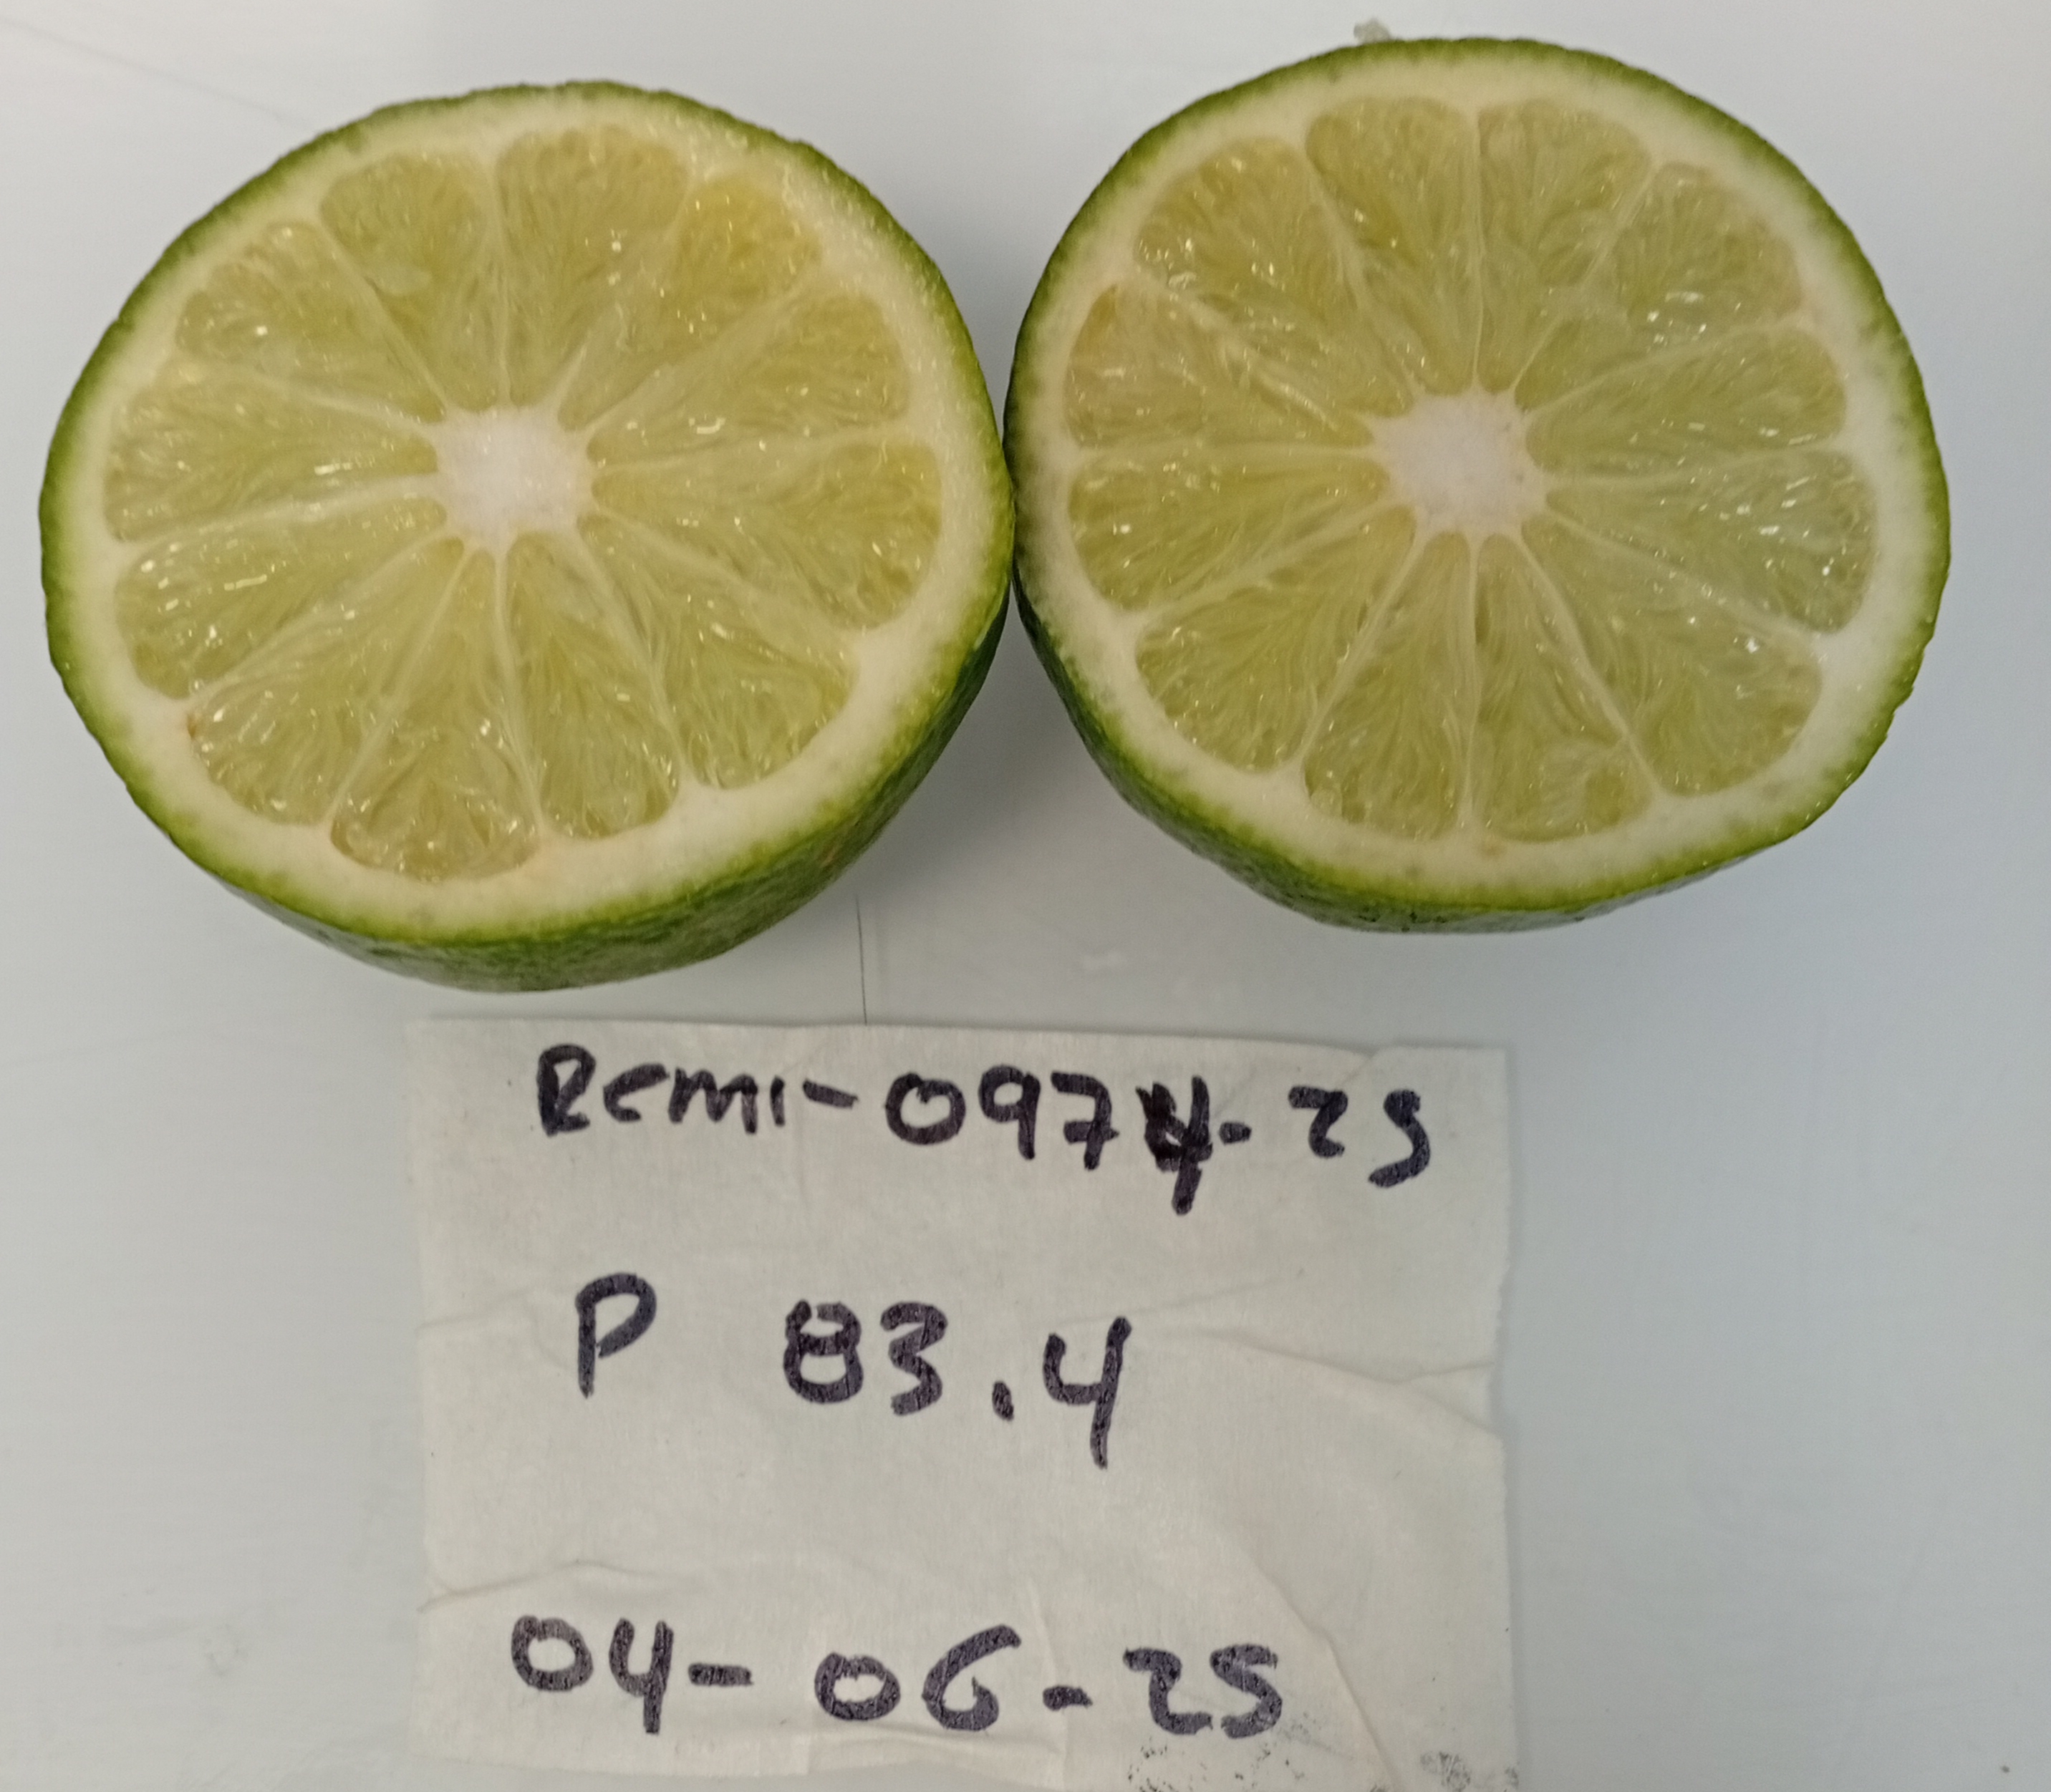 Remi-0974-25
P 83.4
04-06-25